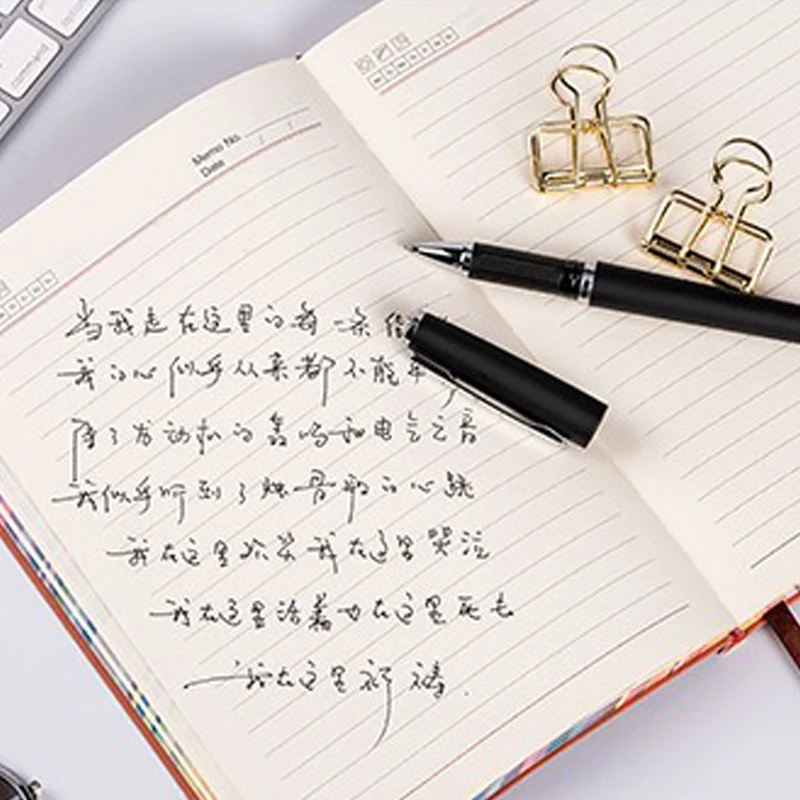 command
Memo No.
Date
当我走在这里的每一条
我的心似乎从来都不能平
除了发动机的轰鸣和电气之音
我似乎听到了烛骨般的心跳
我在这里欢笑 我在这里哭泣
我在这里活着 也在这里死去
我在这里祈祷